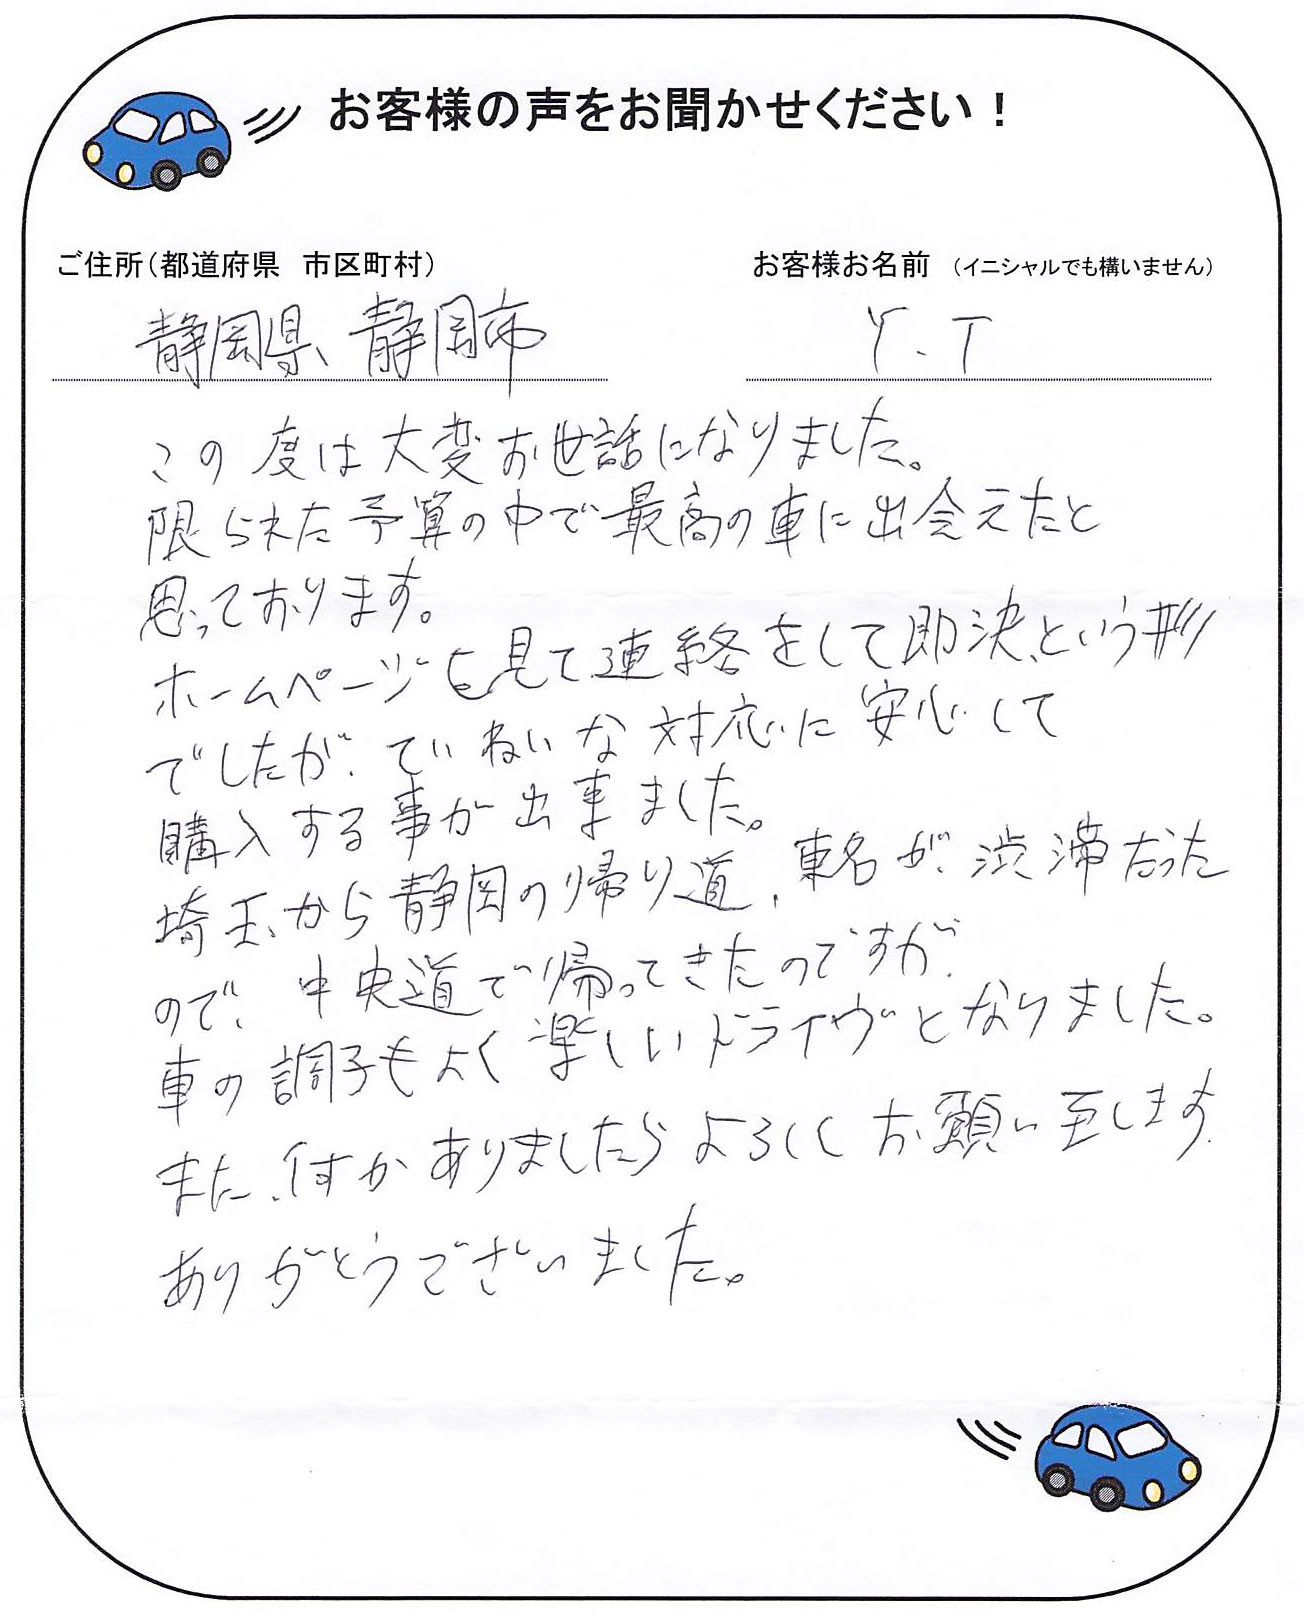 お客様の声をお聞かせください！
ご住所（都道府県　市区町村）
お客様お名前　（イニシャルでも構いません）
静岡県 静岡市
Y.T
この度は大変お世話になりました。
限られた予算の中で最高の車に出会えたと
思っております。
ホームページを見て連絡をして即決、という形
でしたが、ていねいな対応に安心して
購入する事が出来ました。
埼玉から静岡の帰り道、東名が渋滞だった
ので、中央道で帰ってきたのですが、
車の調子もよく楽しいドライヴとなりました。
また、何かありましたらよろしくお願い至します。
ありがとうございました。